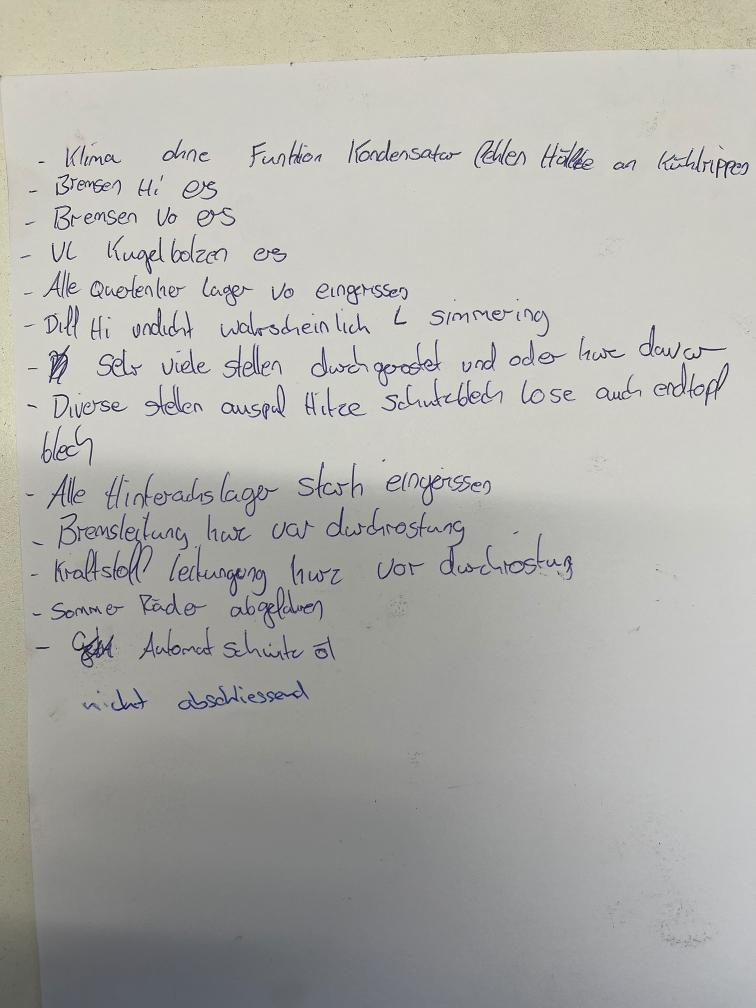 - Klima ohne Funktion Kondensator fehlen Hälfte an Kühlrippen
- Bremsen Hi ers
- Bremsen Vo ers
- VL Kugelbolzen ers
- Alle Querlenker Lager vo eingerissen
- Diff Hi undicht wahrscheinlich L simmering
- Sehr viele stellen durchgerostet und oder kurz davor
- Diverse stellen auspuf Hitze schutzblech lose auch endtopf
blech
- Alle Hinterachslager stark eingerissen
- Bremsleitung kurz vor durchrostung
- Kraftstoff leitungung kurz vor durchrostung
- Sommer Räder abgefahren
- Automat schwitz öl
nicht abschliessend